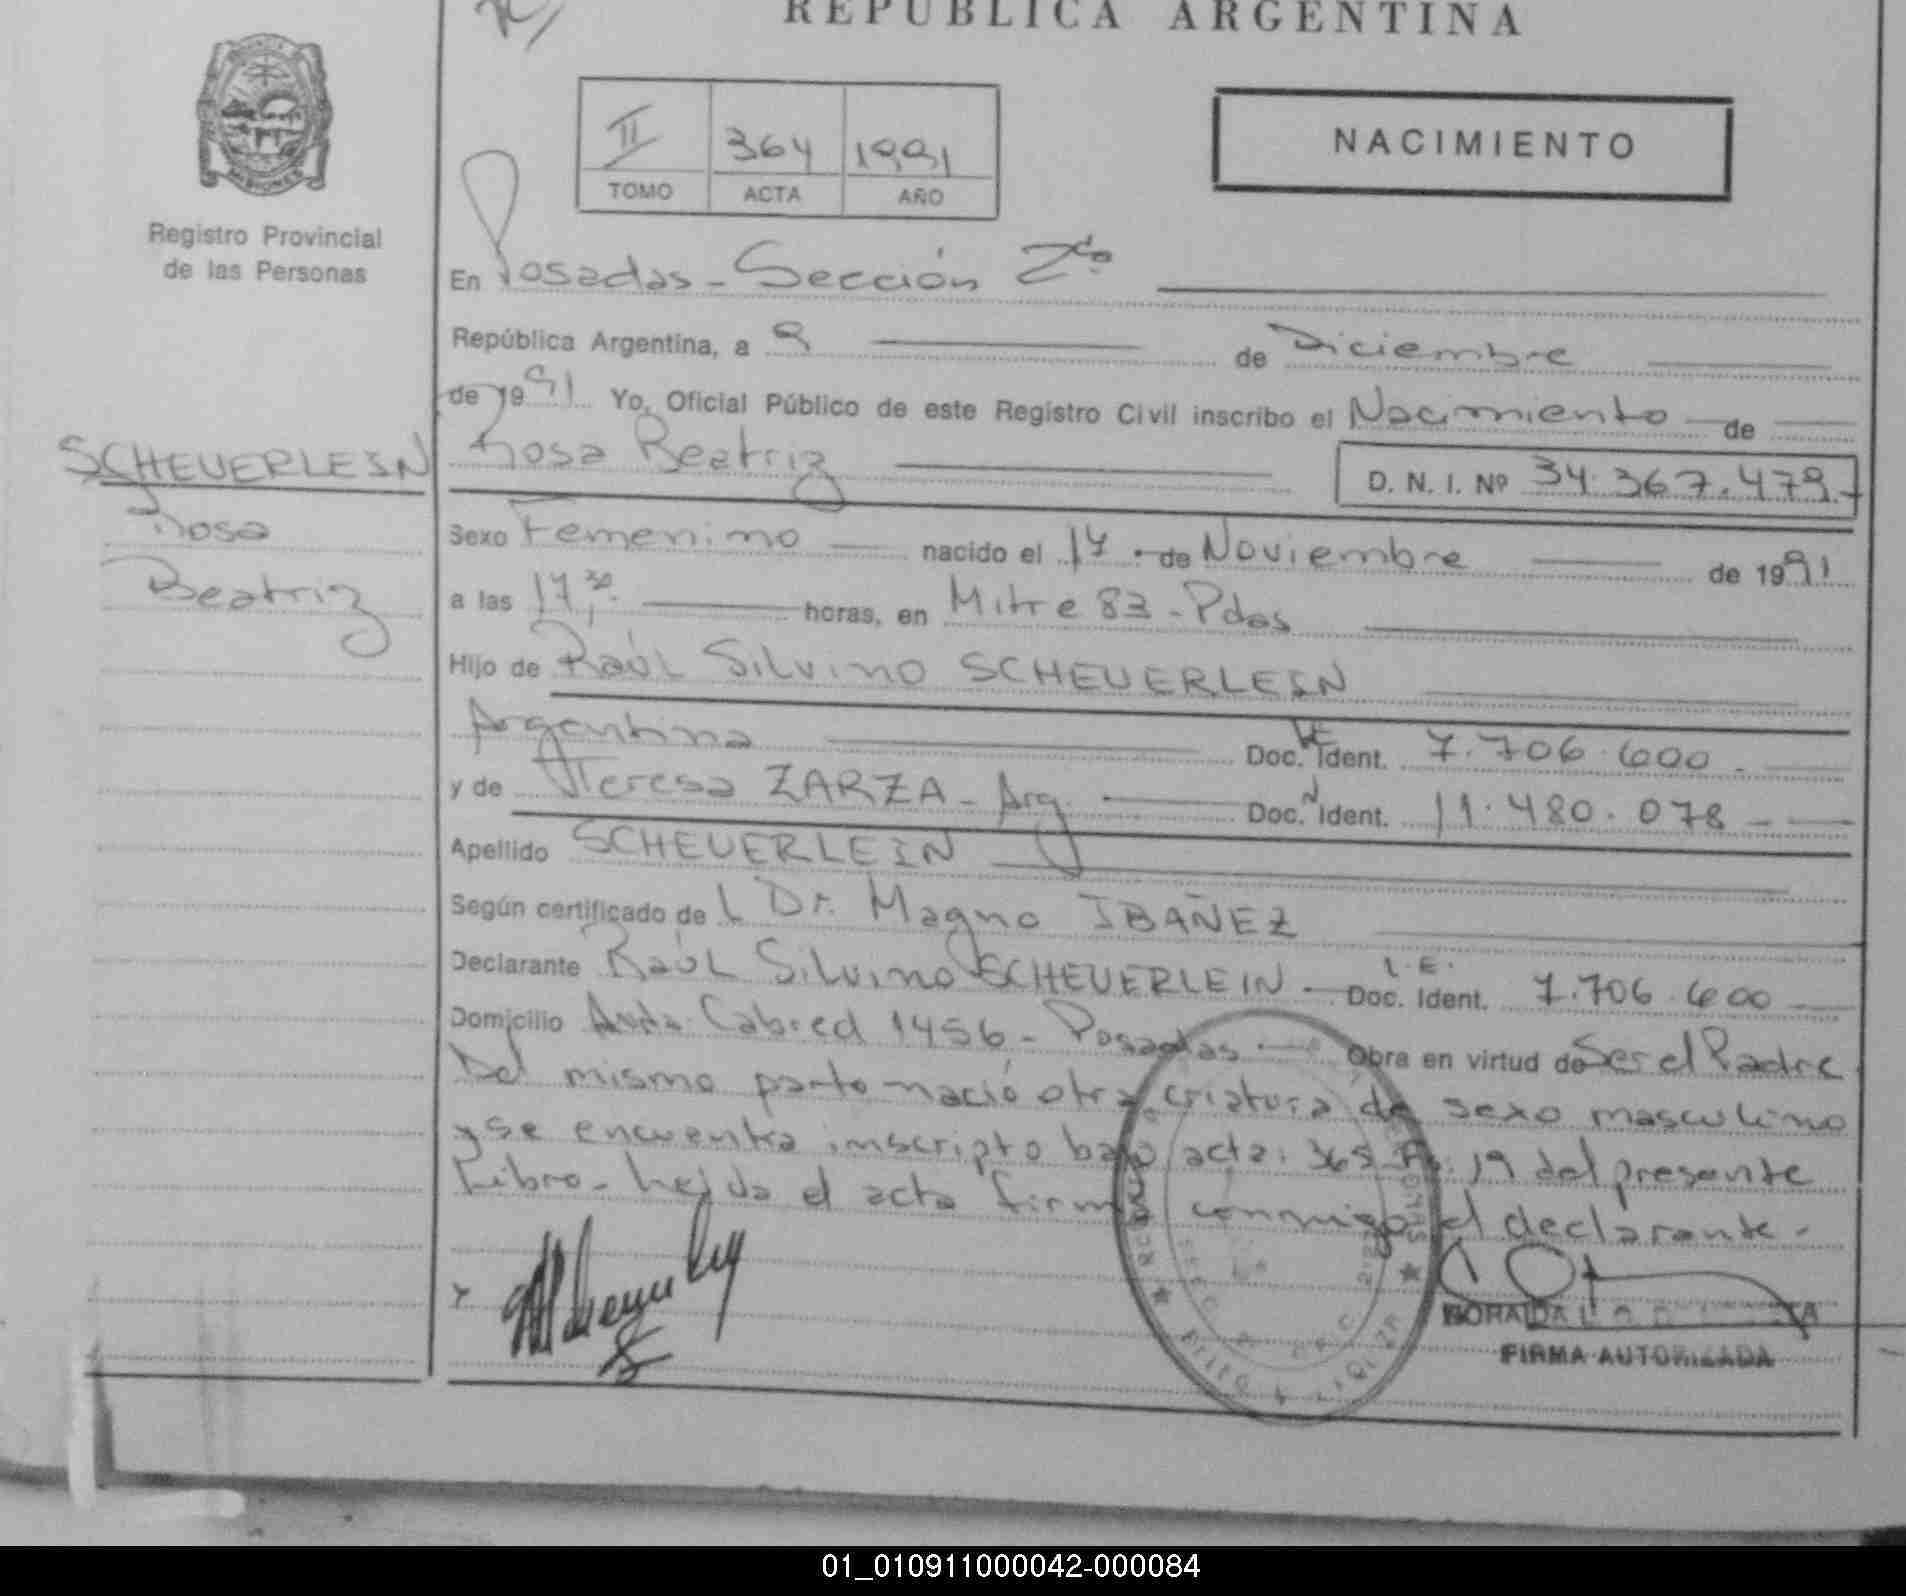 REPUBLICA ARGENTINA
MISIONES
Registro Provincial
de las Personas
II 364 1991
TOMO ACTA AÑO
NACIMIENTO
En Posadas - Sección 2da
República Argentina, a 9 de Diciembre
de 1991 Yo, Oficial Público de este Registro Civil inscribo el Nacimiento de
SCHEUERLEIN
Rosa
Beatriz
Rosa Beatriz D. N. I. Nº 34.367.479.-
Sexo Femenino nacido el 17 de Noviembre de 1991
a las 17,30 horas, en Mitre 83 - Pdas
Hijo de Raúl Silvino SCHEUERLEIN
Argentina Doc. LE Ident. 7.706.600 -
y de Teresa ZARZA - Arg. Doc. N Ident. 11.480.078 -
Apellido SCHEUERLEIN
Según certificado de l Dr. Magno IBAÑEZ
Declarante Raúl Silvino SCHEUERLEIN - L.E. Doc. Ident. 7.706.600
Domicilio Avda. Cabred 1456 - Posadas - Obra en virtud de Ser el Padre
Del mismo parto nació otra criatura de sexo masculino
y se encuentra inscripto bajo acta: 365 Fº: 19 del presente
Libro - leída el acta firma conmigo el declarante -
FIRMA AUTORIZADA
01_010911000042-000084